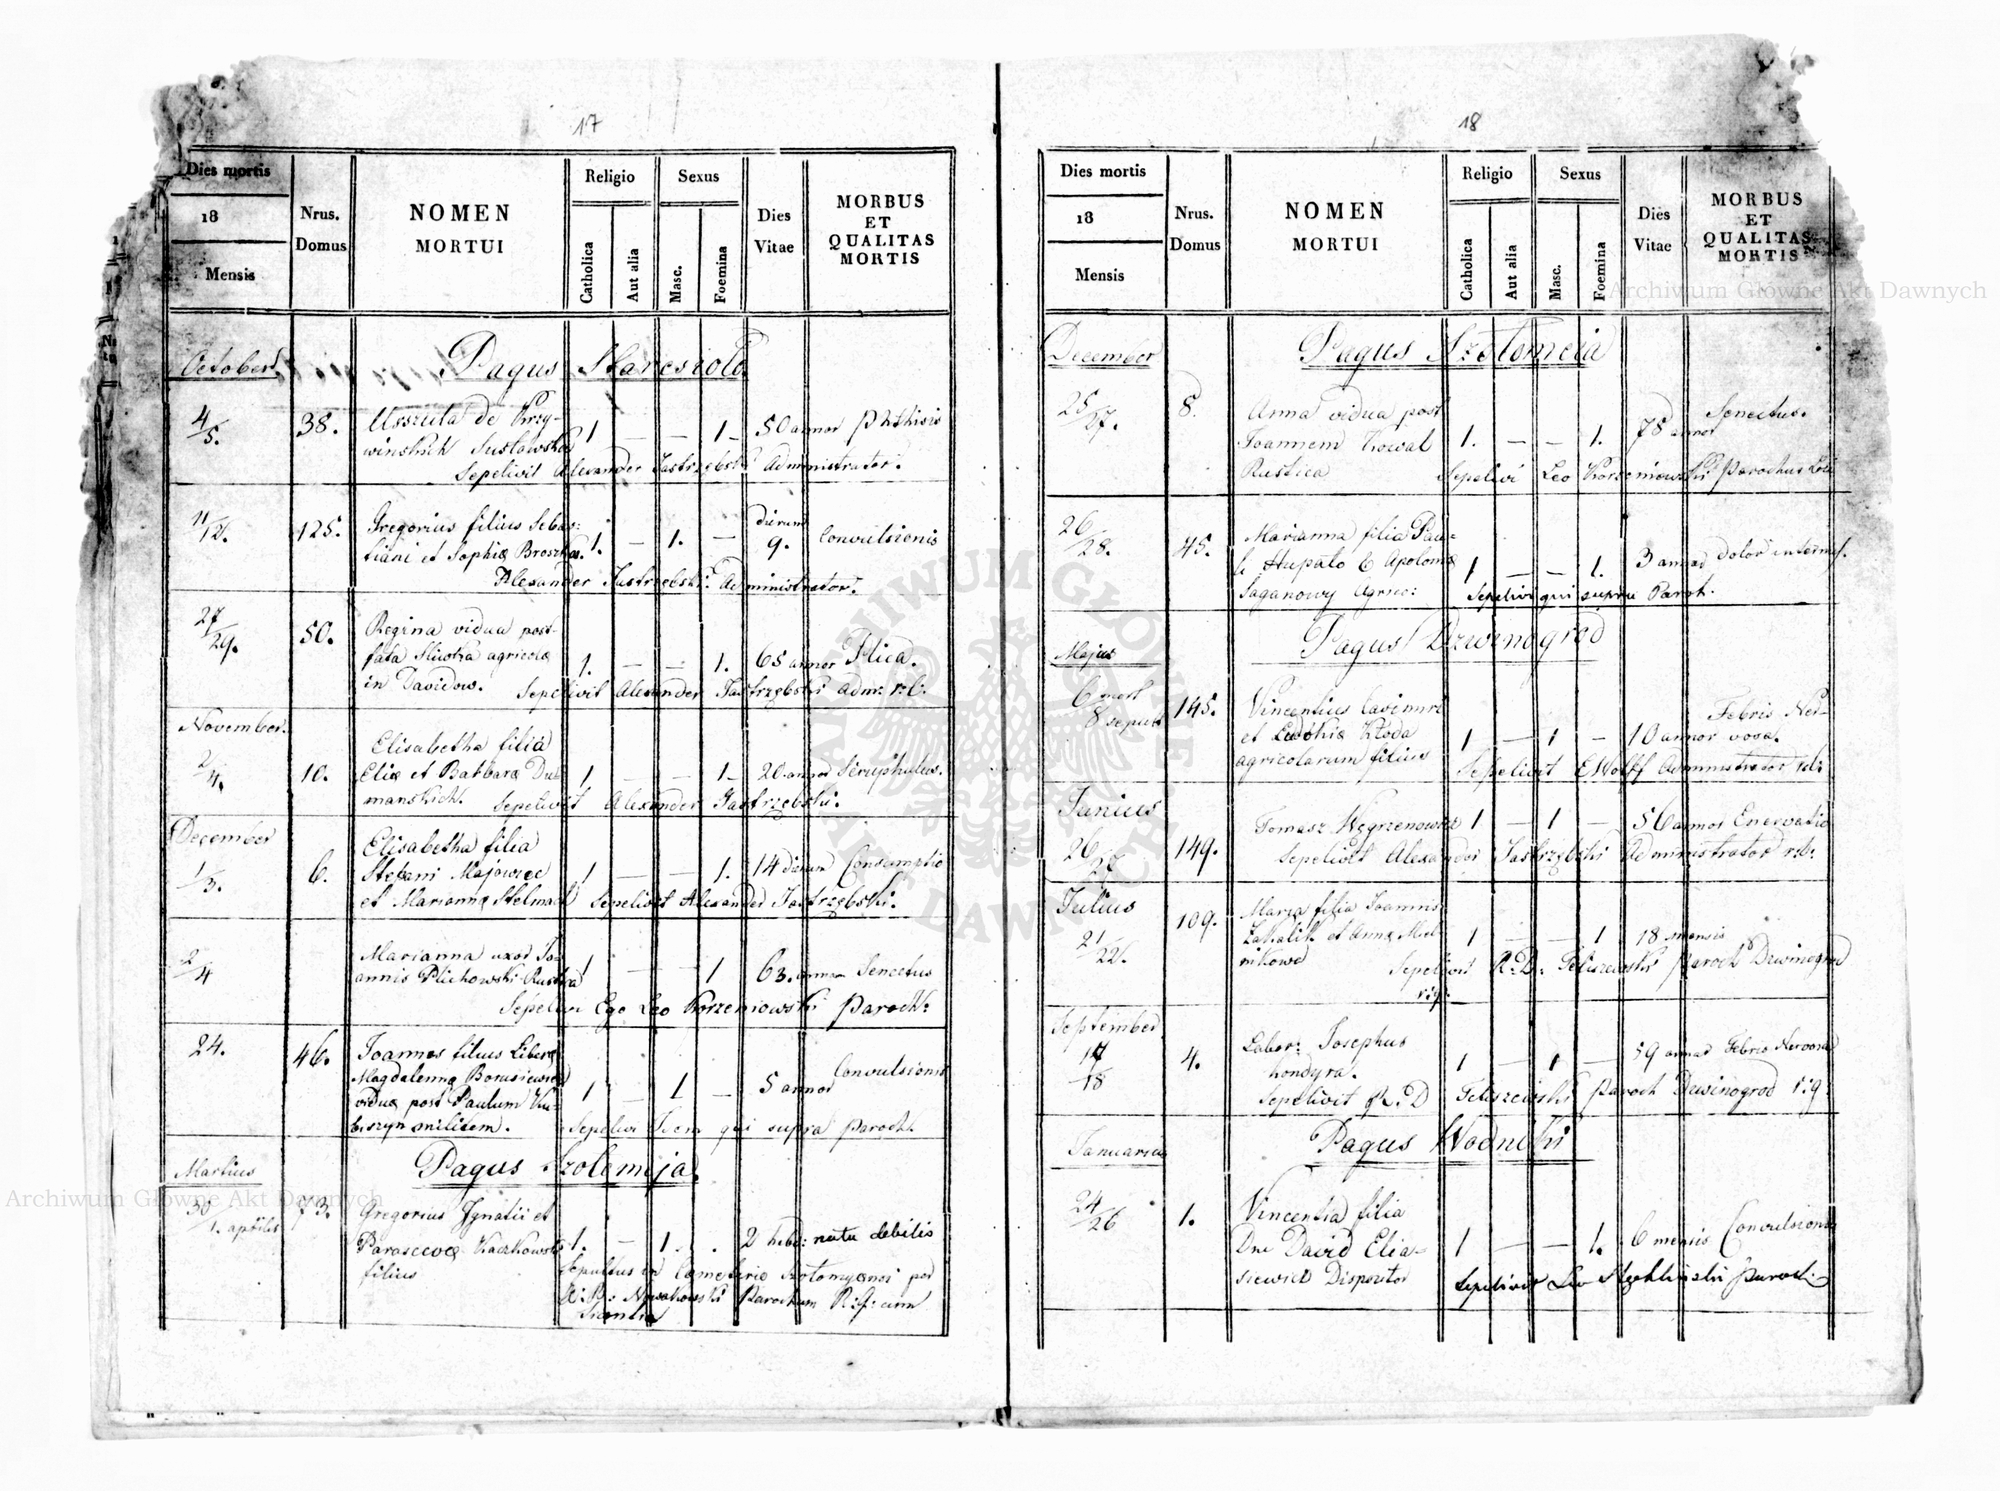 17
Dies mortis
18
Mensis
Nrus. Domus
NOMEN
MORTUI
Religio
Catholica
Aut alia
Sexus
Masc.
Foemina
Dies Vitae
MORBUS
ET
QUALITAS
MORTIS
October
Pagus Staresioło
4/5. 38. Urszula de Krzy- 1 — — 1 — 50 annor Phthisis
winskich Susłowska
Sepelivit Alexander Jastrzębski Administrator.
11/12. 125. Gregorius filius Sebas: 1. — 1. — dierum 9. Convulsionis
tiani et Sophiæ
Alexander Jastrzebski Administrator.
27/29. 50. Regina vidua post 1. — — 1. 65 annor Plica.
fata agricolæ
in Davidow. Sepelivit Alexander Jastrzębski Adm: r: l:
November.
2/4. 10. Elisabetha filia 1 — — 1 — 20 annor
Eliæ et Barbaræ Du-
manskich. Sepelivit Alexander Jastrzębski.
December
1/3. 6. Elisabetha filia 1 — — 1. 14 dierum Consumptio
Stefani Majowicz
et Mariannæ Stelmach Sepelivit Alexander Jastrzębski.
2/4 Marianna uxor Jo- 1 — — 1 63. annor Senectus
annis Plichowski Rustica
Sepelivi Ego Leo Korzeniowski Paroch:
24. 46. Joannes filius Liberæ 1 — 1 — 5 annor Convulsionis
Magdalennæ Borusiewicz
viduæ post Paulum
militem. Sepelivi Idem qui supra Paroch.
Martius
Pagus Szolomeja.
30/1. aprilis 73. Gregorius Ignatii et 1. — 1. . 2 hebd: natu debilis
Parascevæ Kaczkowski
filius
Sepultus in Cœmeterio per
Parochum
licentia
18
Dies mortis
18
Mensis
Nrus. Domus
NOMEN
MORTUI
Religio
Catholica
Aut alia
Sexus
Masc.
Foemina
Dies Vitae
MORBUS
ET
QUALITAS
MORTIS
December
Pagus Szołomeia
25/27. 8. Anna vidua post 1. — — 1. 78 annor Senectus.
Joannem Kowal
Rustica Sepelivi Leo Korzeniowski Parochus
26/28. 45. Marianna filia Pau- 1 — — 1. 3 annor dolor internus.
li Hupało & Apolonia
Saganowy Agric: Sepelivi qui supra Paroch.
Majus
Pagus Dzwinogrod
6 mort 8 sepult 145. Vincentius Casimiri 1 — 1 — 10 annor Febris Ner-
et Kłoda vosa.
agricolarum filius Sepelivit E Wolff Administrator r:l:
Junius
26/27 149. Tomasz Węgrzenowicz 1 — 1 — 56 annor Enervatio
Sepelivit Alexander Jastrzębski Administrator r:l:
Julius
21/22. 109. Maria filia Joannis 1 — — 1 18 mensis
et Annæ Miel-
nikowe Sepelivit R: D: Feliszewski Paroch Dzwinogrod
r:g:
September
17/18 4. Labor: Josephus 1 — 1 — 59 annor Febris Nervosa
hondyra.
Sepelivit R: D Feliszewski Paroch Dzwinogrod r:g
Januarius
Pagus Wodniki
24/26 1. Vincentia filia 1 — — 1. 6 mensis Convulsionis
Dni David Elia-
siewicz Dispozitor Sepelivit Leo Paroch:
Archiwum Główne Akt Dawnych
Archiwum Główne Akt Dawnych
ARCHIWUM GŁÓWNE AKT DAWNYCH